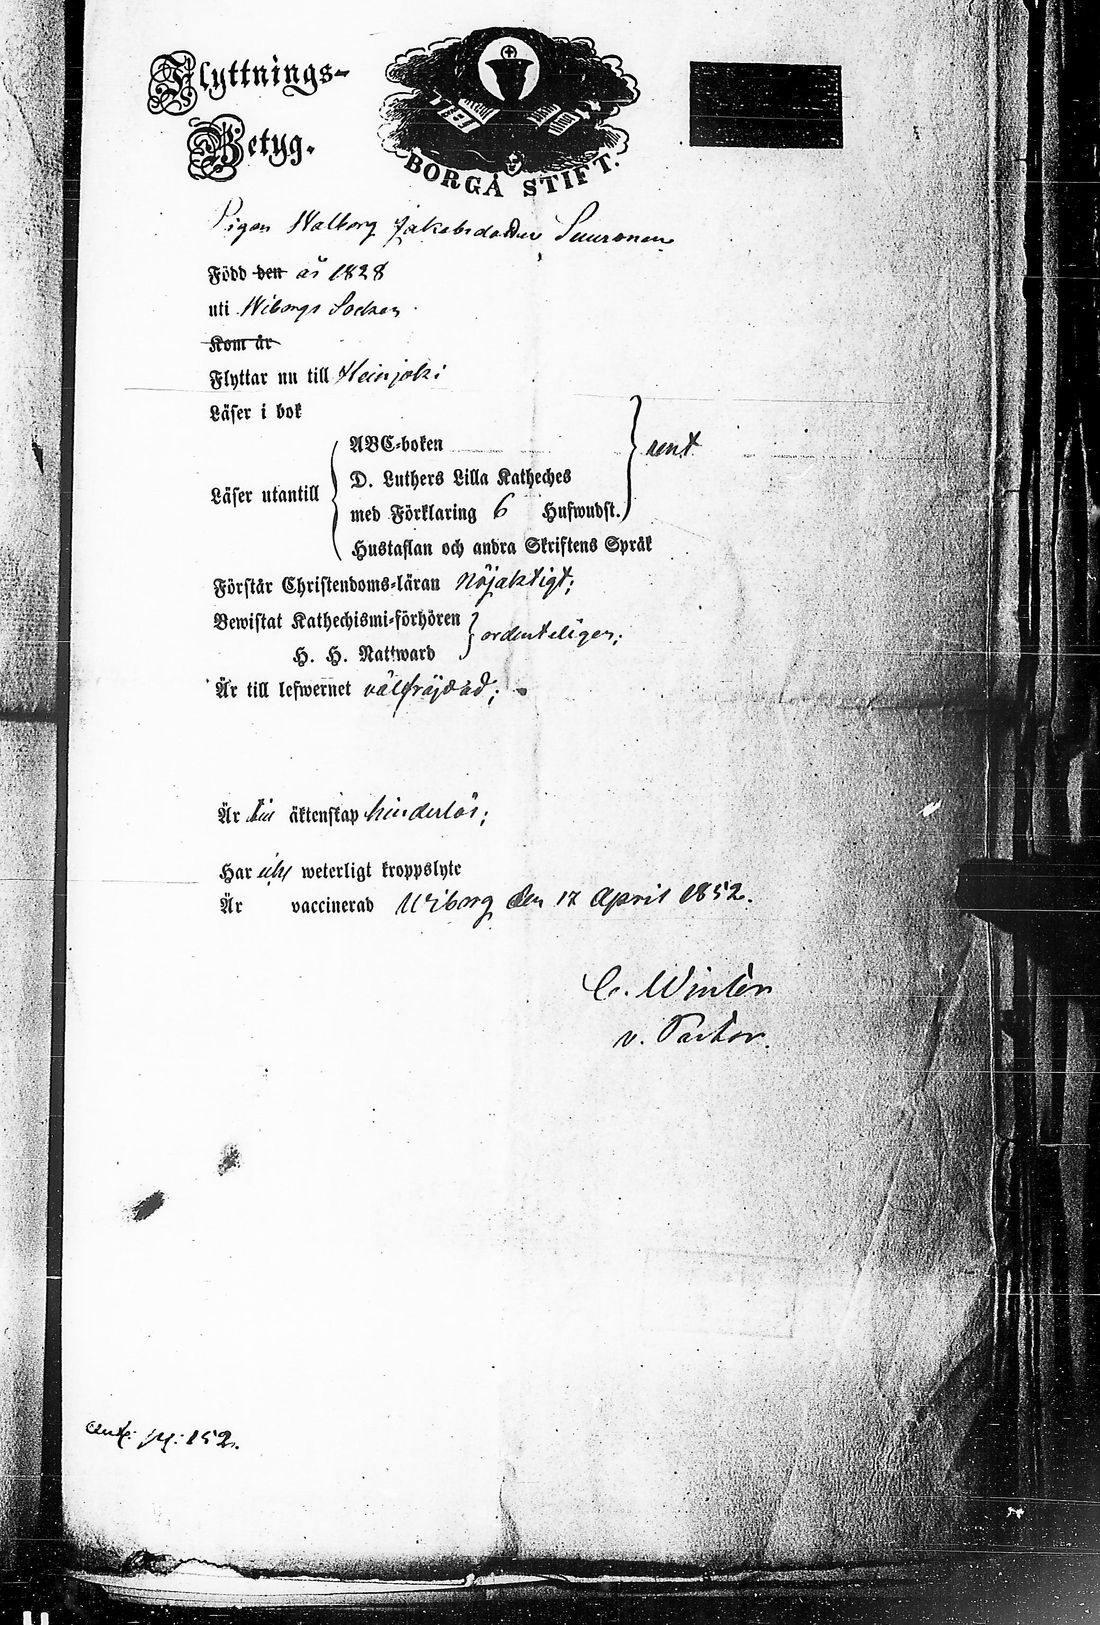 Flyttnings-
Betyg.
BORGÅ STIFT.
Pigan Walborg Jakobsdotter Suuronen
Född den år 1828
uti Wiborgs Socken
Kom år
Flyttar nu till Heinjoki
Läser i bok
ABC-boken
rent
D. Luthers Lilla Katheches
Läser utantill
med Förklaring 6 Hufwudst.
Hustaflan och andra Skriftens Språk
Förstår Christendoms-läran Nöjaktigt;
Bewistat Kathechismi-förhören
ordenteligen;
H. H. Nattward
Är till lefwernet välfräjdad;
Är till äktenskap hinderlös;
Har icke weterligt kroppslyte
Är vaccinerad Wiborg den 17 April 1852.
C. Winter
v. Pastor.